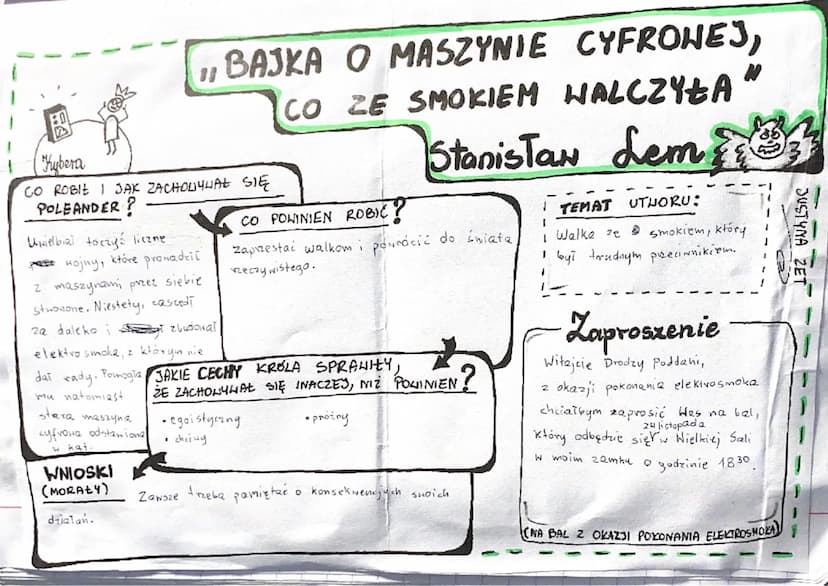 „BAJKA O MASZYNIE CYFROWEJ,
CO ZE SMOKIEM WALCZYŁA"
Stanisław Lem
Kybera
CO ROBIŁ I JAK ZACHOWYWAŁ SIĘ
POLEANDER?
Uwielbiał toczyć liczne
wojny, które prowadził
z maszynami przez siebie
stworzone. Niestety,
za daleko i zbudował
elektrosmoka, z którym nie
dał rady. Pomogła
mu natomiast
stara maszyna
cyfrowa odstawiona
w kąt.
CO POWINIEN ROBIĆ?
Zaprzestać walkom i powrócić do świata
rzeczywistego.
JAKIE CECHY KRÓLA SPRAWIŁY,
ŻE ZACHOWYWAŁ SIĘ INACZEJ, NIŻ POWINIEN?
• egoistyczny
• próżny
• dziwny
WNIOSKI
(MORAŁY)
Zawsze trzeba pamiętać o konsekwencjach swoich
działań.
TEMAT UTWORU:
Walka ze smokiem, który
był trudnym przeciwnikiem.
JUSTYNA ZET
Zaproszenie
Witajcie Drodzy Poddani,
z okazji pokonania elektrosmoka
chciałbym zaprosić Was na bal,
24 listopada
który odbędzie się w Wielkiej Sali
w moim zamku o godzinie 18³⁰.
(NA BAL Z OKAZJI POKONANIA ELEKTROSMOKA)